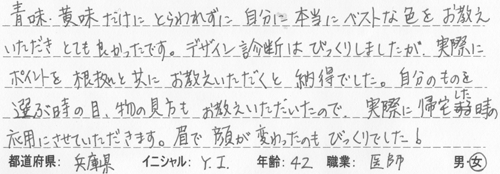 青味・黄味だけにとらわれずに自分に本当にベストな色をお教え
いただきとても良かったです。デザイン診断はびっくりしましたが、実際に
ポイントを根拠と共にお教えいただくと納得でした。自分のものを
選ぶ時の目、物の見方もお教えいただいたので、実際に帰宅した時の
応用にさせていただきます。眉で顔が変わったのもびっくりでした!
都道府県: 兵庫県 イニシャル: Y.I. 年齢: 42 職業: 医師 男・女